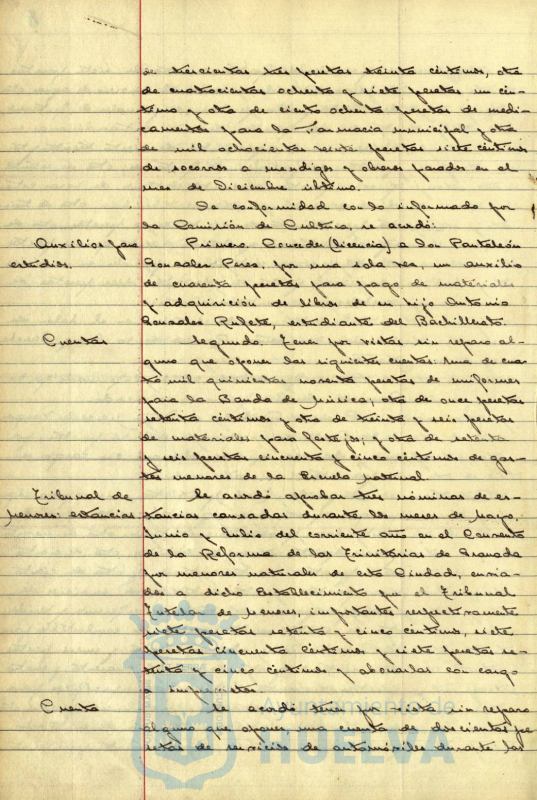 de trescientas tres pesetas treinta céntimos, otra
de cuatrocientas ochenta y siete pesetas un cén-
timo y otra de ciento ochenta pesetas de medi-
camentos para la Farmacia municipal y otra
de mil ochocientas veinte pesetas siete céntimos
de socorros a mendigos y obreros parados en el
mes de Diciembre último.
De conformidad con lo informado por
la Comisión de Cultura, se acordó:
Auxilios para
estudios.
Primero. Conceder (licencia) a don Pantaleón
Gonzalez Perez, por una sola vez, un auxilio
de cuarenta pesetas para pago de materiales
y adquisición de libros de su hijo Antonio
Gonzalez Rufete, estudiante del Bachillerato.
Cuentas
Segundo. Tener por vistas sin reparo al-
guno que oponer las siguientes cuentas: Una de cua-
tro mil quinientas noventa pesetas de uniformes
para la Banda de Música; otra de once pesetas
setenta céntimos y otra de treinta y seis pesetas
de materiales para festejos; y otra de setenta
y seis pesetas cincuenta y cinco céntimos de gas-
tos menores de la Escuela maternal.
Tribunal de
Menores: estancias
Se acordó aprobar tres nóminas de es-
tancias causadas durante los meses de Mayo,
Junio y Julio del corriente año en el Convento
de la Reforma de las Trinitarias de Granada
por menores naturales de esta Ciudad, envia-
das a dicho Establecimiento por el Tribunal
Tutelar de Menores, importantes respectivamente
siete pesetas setenta y cinco céntimos, siete
pesetas cincuenta céntimos y siete pesetas se-
tenta y cinco céntimos y abonarlas con cargo
a imprevistos.
Cuenta
Se acordó tener por vista sin reparo
alguno que oponer una cuenta de doscientas pe
setas de servicios de automóviles durante los
Ayuntamiento de
HUELVA